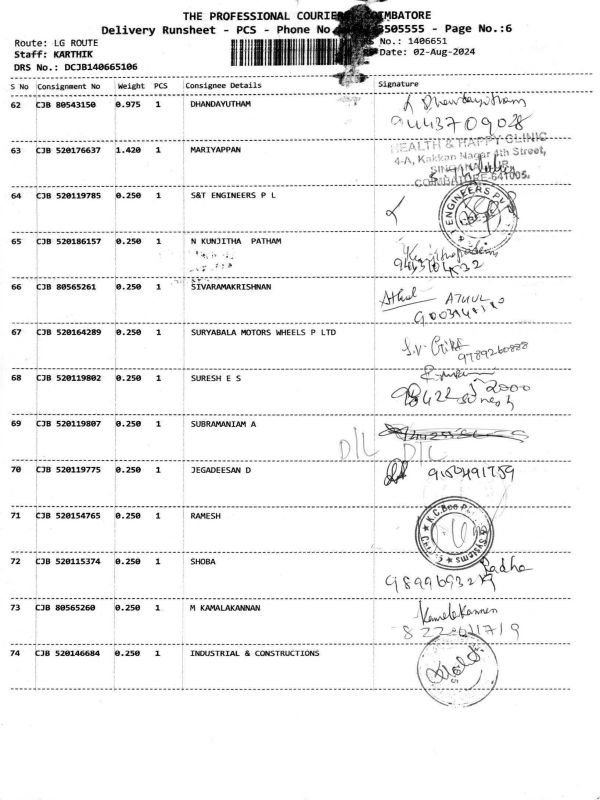 THE PROFESSIONAL COURIE COIMBATORE
Delivery Runsheet - PCS - Phone No. 3505555 - Page No.:6
Route: LG ROUTE
S No.: 1406651
Staff: KARTHIK
Date: 02-Aug-2024
DRS No.: DCJB140665106
S No Consignment No Weight PCS Consignee Details Signature
62 CJB 80543150 0.975 1 DHANDAYUTHAM Dhandayutham
9443709028
63 CJB 520176637 1.420 1 MARIYAPPAN
HEALTH & HAPPY CLINIC
4-A, Kakkan Nagar 4th Street,
COIMBATORE-641005.
64 CJB 520119785 0.250 1 S&T ENGINEERS P L
ENGINEERS PVT
65 CJB 520186157 0.250 1 N KUNJITHA PATHAM
66 CJB 80565261 0.250 1 SIVARAMAKRISHNAN
Athul ATHUL
67 CJB 520164289 0.250 1 SURYABALA MOTORS WHEELS P LTD
9789260888
68 CJB 520119802 0.250 1 SURESH E S
98422 52000
Suresh
69 CJB 520119807 0.250 1 SUBRAMANIAM A
D/L D/L
70 CJB 520119775 0.250 1 JEGADEESAN D
9150491759
71 CJB 520154765 0.250 1 RAMESH
K.C.Bee Systems
72 CJB 520115374 0.250 1 SHOBA Radha
73 CJB 80565260 0.250 1 M KAMALAKANNAN Kamalakannan
74 CJB 520146684 0.250 1 INDUSTRIAL & CONSTRUCTIONS